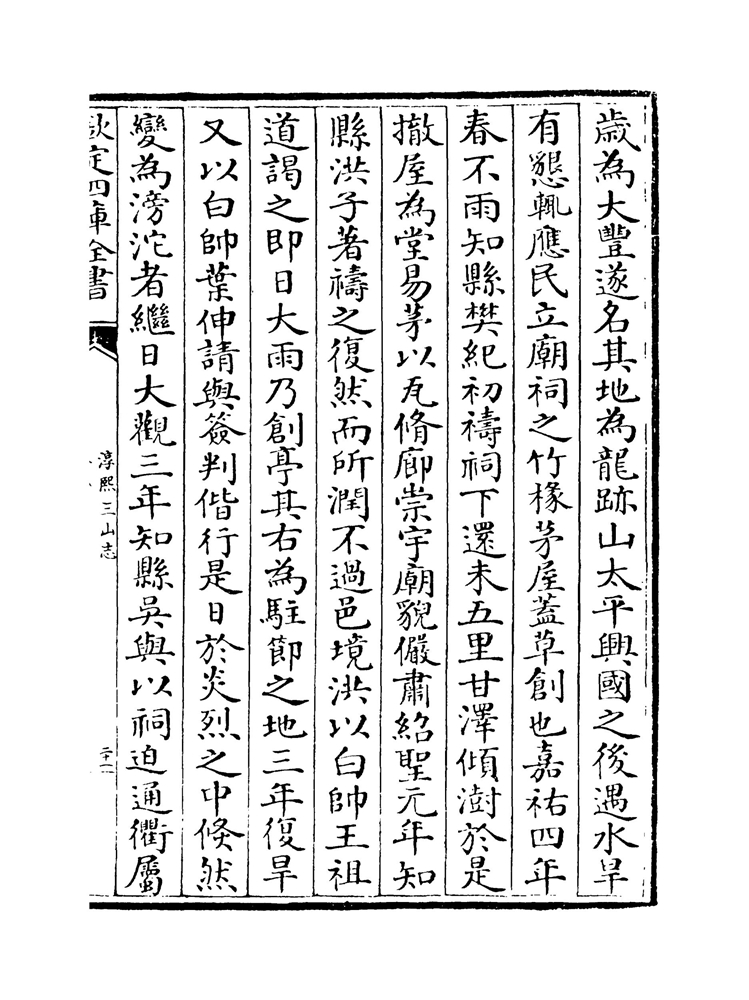 歲為大豐遂名其地為龍跡山太平興國之後遇水旱
有懇輒應民立廟祠之竹椽茅屋蓋草創也嘉祐四年
春不雨知縣樊紀初禱祠下還未五里甘澤傾澍於是
撤屋為堂易茅以瓦脩廊崇宇廟貌儼肅紹聖元年知
縣洪子著禱之復然而所潤不過邑境洪以白帥王祖
道謁之即日大雨乃創亭其右為駐節之地三年復旱
又以白帥葉伸請與簽判偕行是日於炎烈之中倐然
變為滂沱者繼日大觀三年知縣吳與以祠迫通衢屬
欽定四庫全書
淳熙三山志